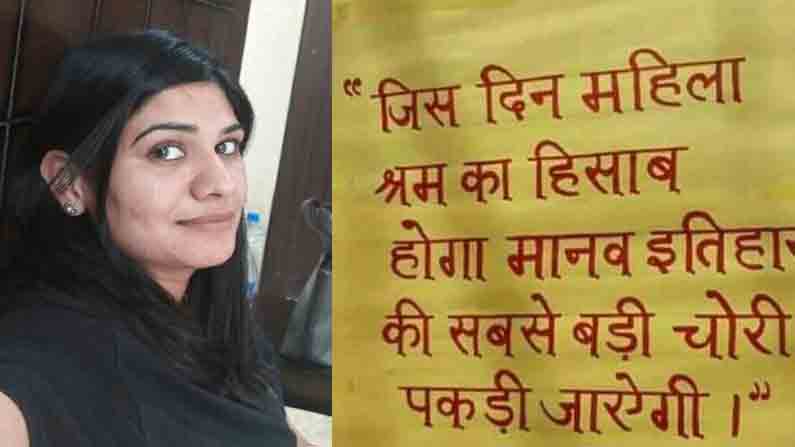 “जिस दिन महिला
श्रम का हिसाब
होगा मानव इतिहास
की सबसे बड़ी चोरी
पकड़ी जाऐगी।”